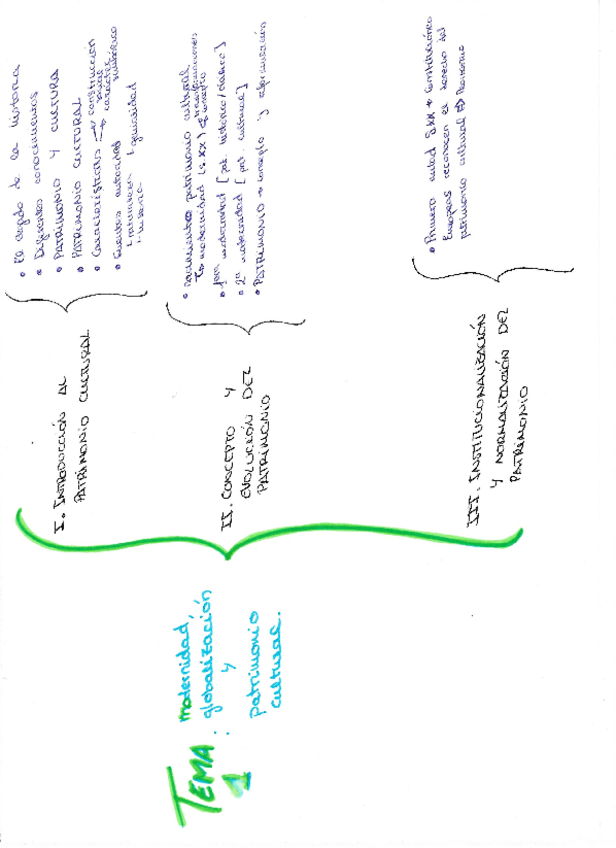 TEMA 1: modernidad,
globalización
y
patrimonio
cultural.
I. INTRODUCCIÓN AL
PATRIMONIO CULTURAL
• El legado de la historia
• Diferentes conocimientos
• PATRIMONIO Y CULTURA
• PATRIMONIO CULTURAL
• Características → construcción social
→ carácter simbólico
• Fuentes autoridad
naturaleza
genialidad
historia
II. CONCEPTO Y
EVOLUCIÓN DEL
PATRIMONIO
• nacimiento patrimonio cultural
modernidad (s. XX) transformaciones
concepto
• 1era modernidad [pat. histórico/clásico]
• 2ª modernidad [pat. cultural]
• PATRIMONIO → concepto y
III. INSTITUCIONALIZACIÓN
Y NORMALIZACIÓN DEL
PATRIMONIO
• Primera mitad S.XX → Constituciones
Europeas reconocen el derecho del
patrimonio cultural